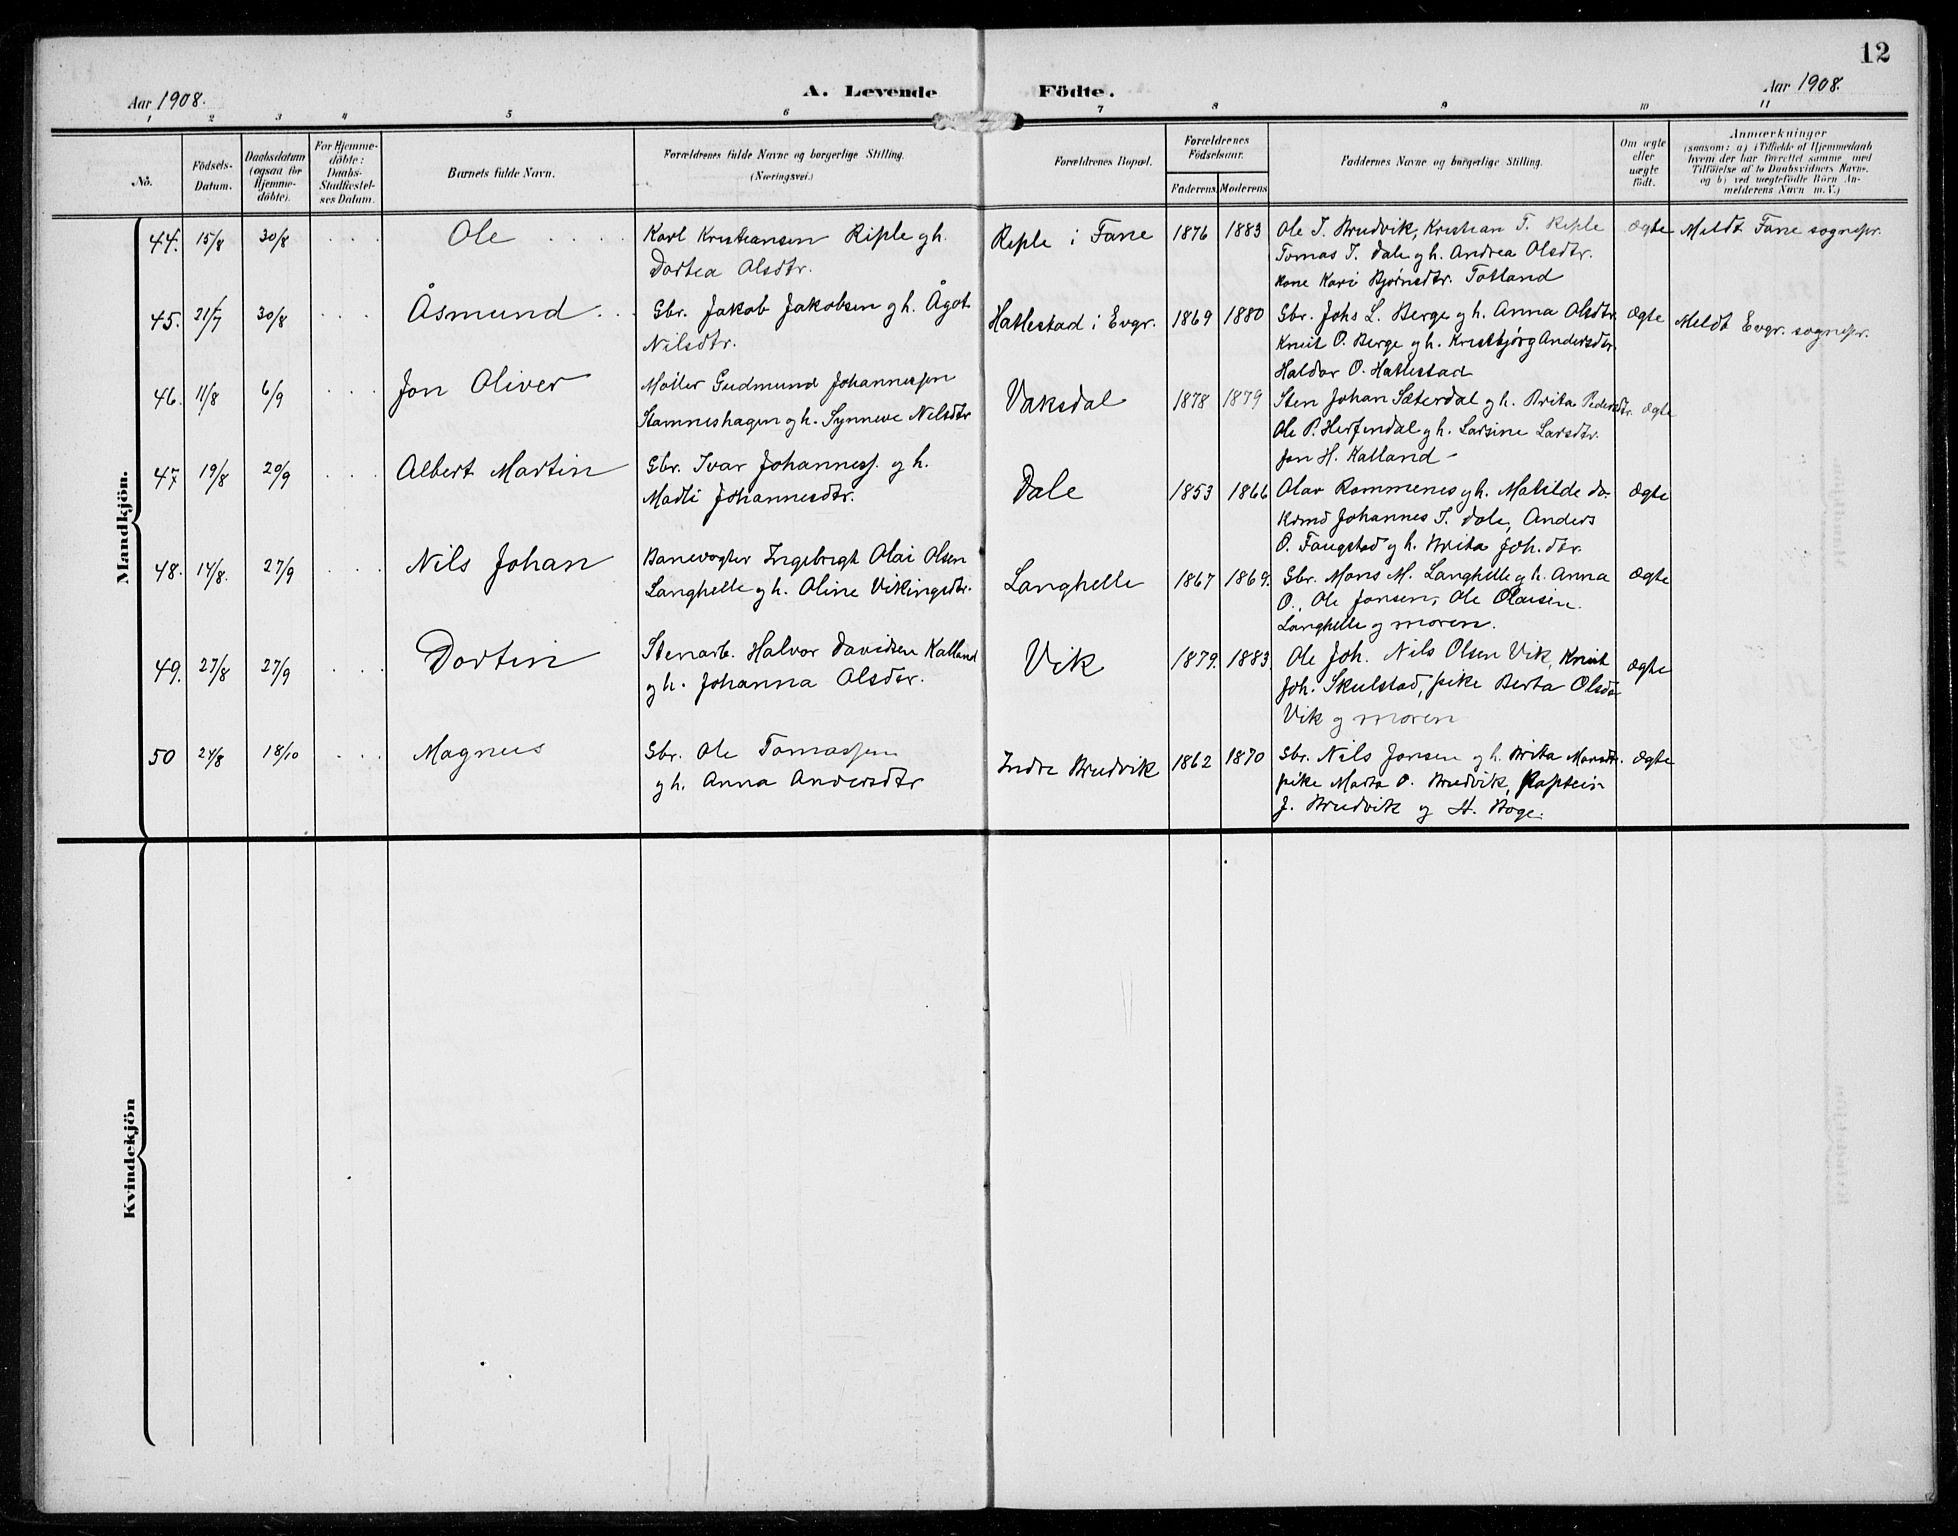 12
Aar 1908.
A. Levende Födte.
Aar 1908.
1 2 3 4 5 6 7 8 9 10 11
No.
Födsels-
Datum.
Daabsdatum
(ogsaa for
Hjemme-
döbte).
For Hjemme-
döbte:
Daabs-
Stadfæstel-
ses Datum.
Barnets fulde Navn.
Forældrenes fulde Navne og borgerlige Stilling.
(Næringsvei.)
Forældrenes Bopæl.
Forældrenes
Födselsaar.
Faderens. Moderens.
Faddernes Navne og borgerlige Stilling.
Om ægte
eller
uægte
födt.
Anmærkninger
(saasom: a) i Tilfælde af Hjemmedaab
hvem der har forrettet samme, med
Tilföielse af to Daabsvidners Navne.
og b) ved uægtefödte Börn An-
melderens Navn m. V.)
Mandkjön.
44. 15/8 30/8 . . . Ole . . . .
Karl Kristiansen Riple gh.
Dortea Olsdtr.
Riple i Fane 1876 1883
Ole I. Brudvik, Kristian T. Riple
Tomas I. Dale gh. Andrea Olsdtr.
Kone Kari Bjørnsdtr. Totland
Ægte Meldt Fane sognepr.
45. 21/7 30/8 . . . Åsmund . .
Gbr. Jakob Jakobsen gh. Ågot
Nilsdtr.
Hatlestad i Evgr. 1869 1880
Gbr. Johs L. Berge gh. Anna Olsdtr.
Knut O. Berge gh. Kristbjørg Andersdtr.
Haldor O. Hatlestad
Ægte Meldt Evgr. sognepr.
46. 11/8 6/9 . . . Jon Oliver
Møller Gudmund Johannessen
Stamneshagen gh. Synneve Nilsdtr
Vaksdal 1878 1879
Sten Johan Sæterdal gh. Brita Pedersdtr.
Ole P. Herfindal gh. Larsine Larsdtr.
Jon H. Kalland -
Ægte
47 19/8 20/9 . . . Albert Martin
Gbr. Ivar Johanness. gh.
Madli Johannesdtr.
Dale 1853 1866
Olav Rommenes gh. Matilde do.
Johannes I. Dale, Anders
O. Faugstad gh. Brita Joh.dtr.
Ægte
48. 14/8. 27/9 . . . Nils Johan
Banevogter Ingebrigt Olai Olsen
Langhelle gh. Oline Vikingsdtr.
Langhelle 1867 1869.
Gbr. Mons M. Langhelle gh. Anna
O., Ole Jonsen, Ole Olaisen
Langhelle og moren.
Ægte
49. 27/8 27/9 . . . Dortin
Stenarb. Halvor Davidsen Kalland
gh. Johanna Olsdtr.
Vik 1879. 1883
Ole Joh. Nils Olsen Vik, Knut
Joh. Skulstad, pike Berta Olsdtr
Vik og moren
Ægte
50 24/8 18/10 . . . Magnus
Gbr. Ole Tomassen
gh. Anna Andersdtr
Indre Brudvik 1862 1870
Gbr. Nils Jonsen gh. Brita Monsdtr.
pike Marta O. Brudvik, Kaptein
J. Brudvik og H. Boge.
Ægte
Kvindekjön